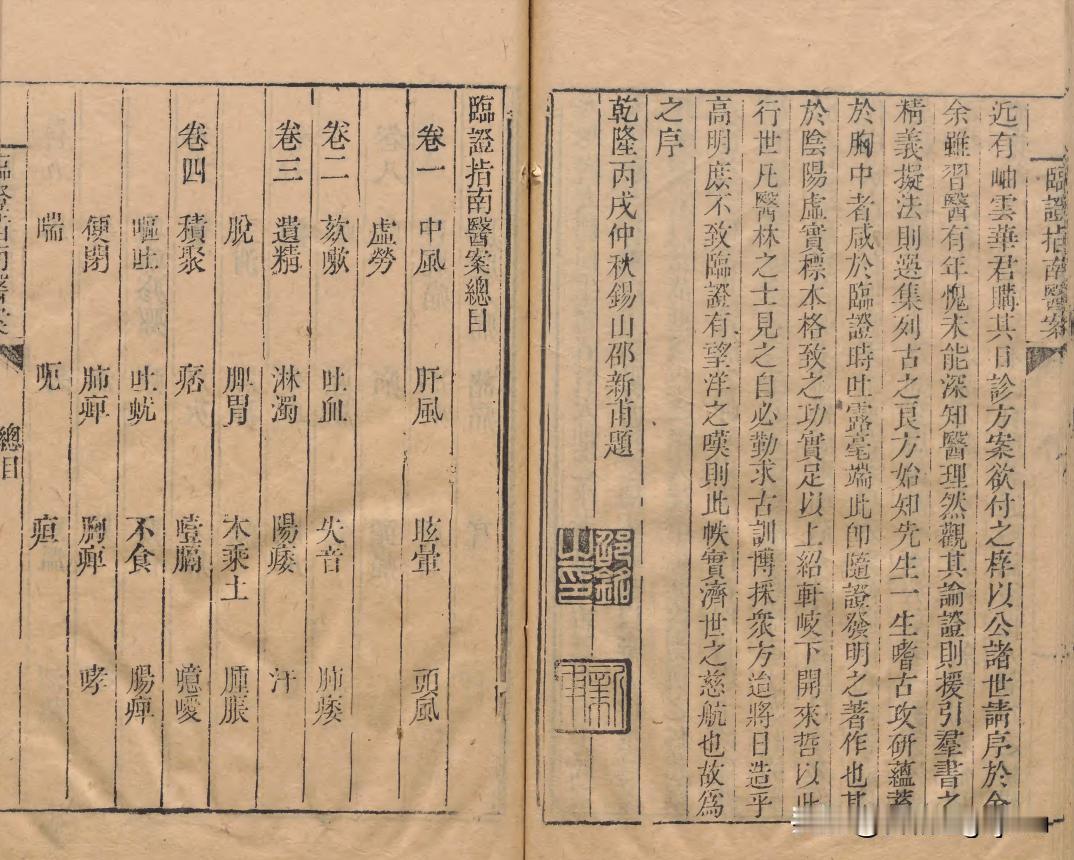 臨證指南醫案
近有岫雲華君購其日診方案欲付之梓以公諸世請序於余
余雖習醫有年愧未能深知醫理然觀其論證則援引羣書之
精義擬法則選集列古之良方始知先生一生嗜古攻研蘊蓄
於胸中者咸於臨證時吐露毫端此卽隨證發明之著作也其
於陰陽虛實標本格致之功實足以上紹軒岐下開來哲以此
行世凡醫林之士見之自必勤求古訓博採衆方造將日造乎
高明庶不致臨證有望洋之嘆則此帙實濟世之慈航也故為
之序
乾隆丙戌仲秋錫山邵新甫題
邵銘之印
新甫
臨證指南醫案總目
卷一 中風 肝風 眩暈 頭風
虛勞
卷二 欬嗽 吐血 失音 肺痿
卷三 遺精 淋濁 陽痿 汗
脫 脾胃 木乘土 腫脹
卷四 積聚 痞 噎膈 噫噯
嘔吐 吐蚘 不食 腸痺
便閉 肺痺 胸痺 哮
喘 呃 疸
臨證指南醫案 總目